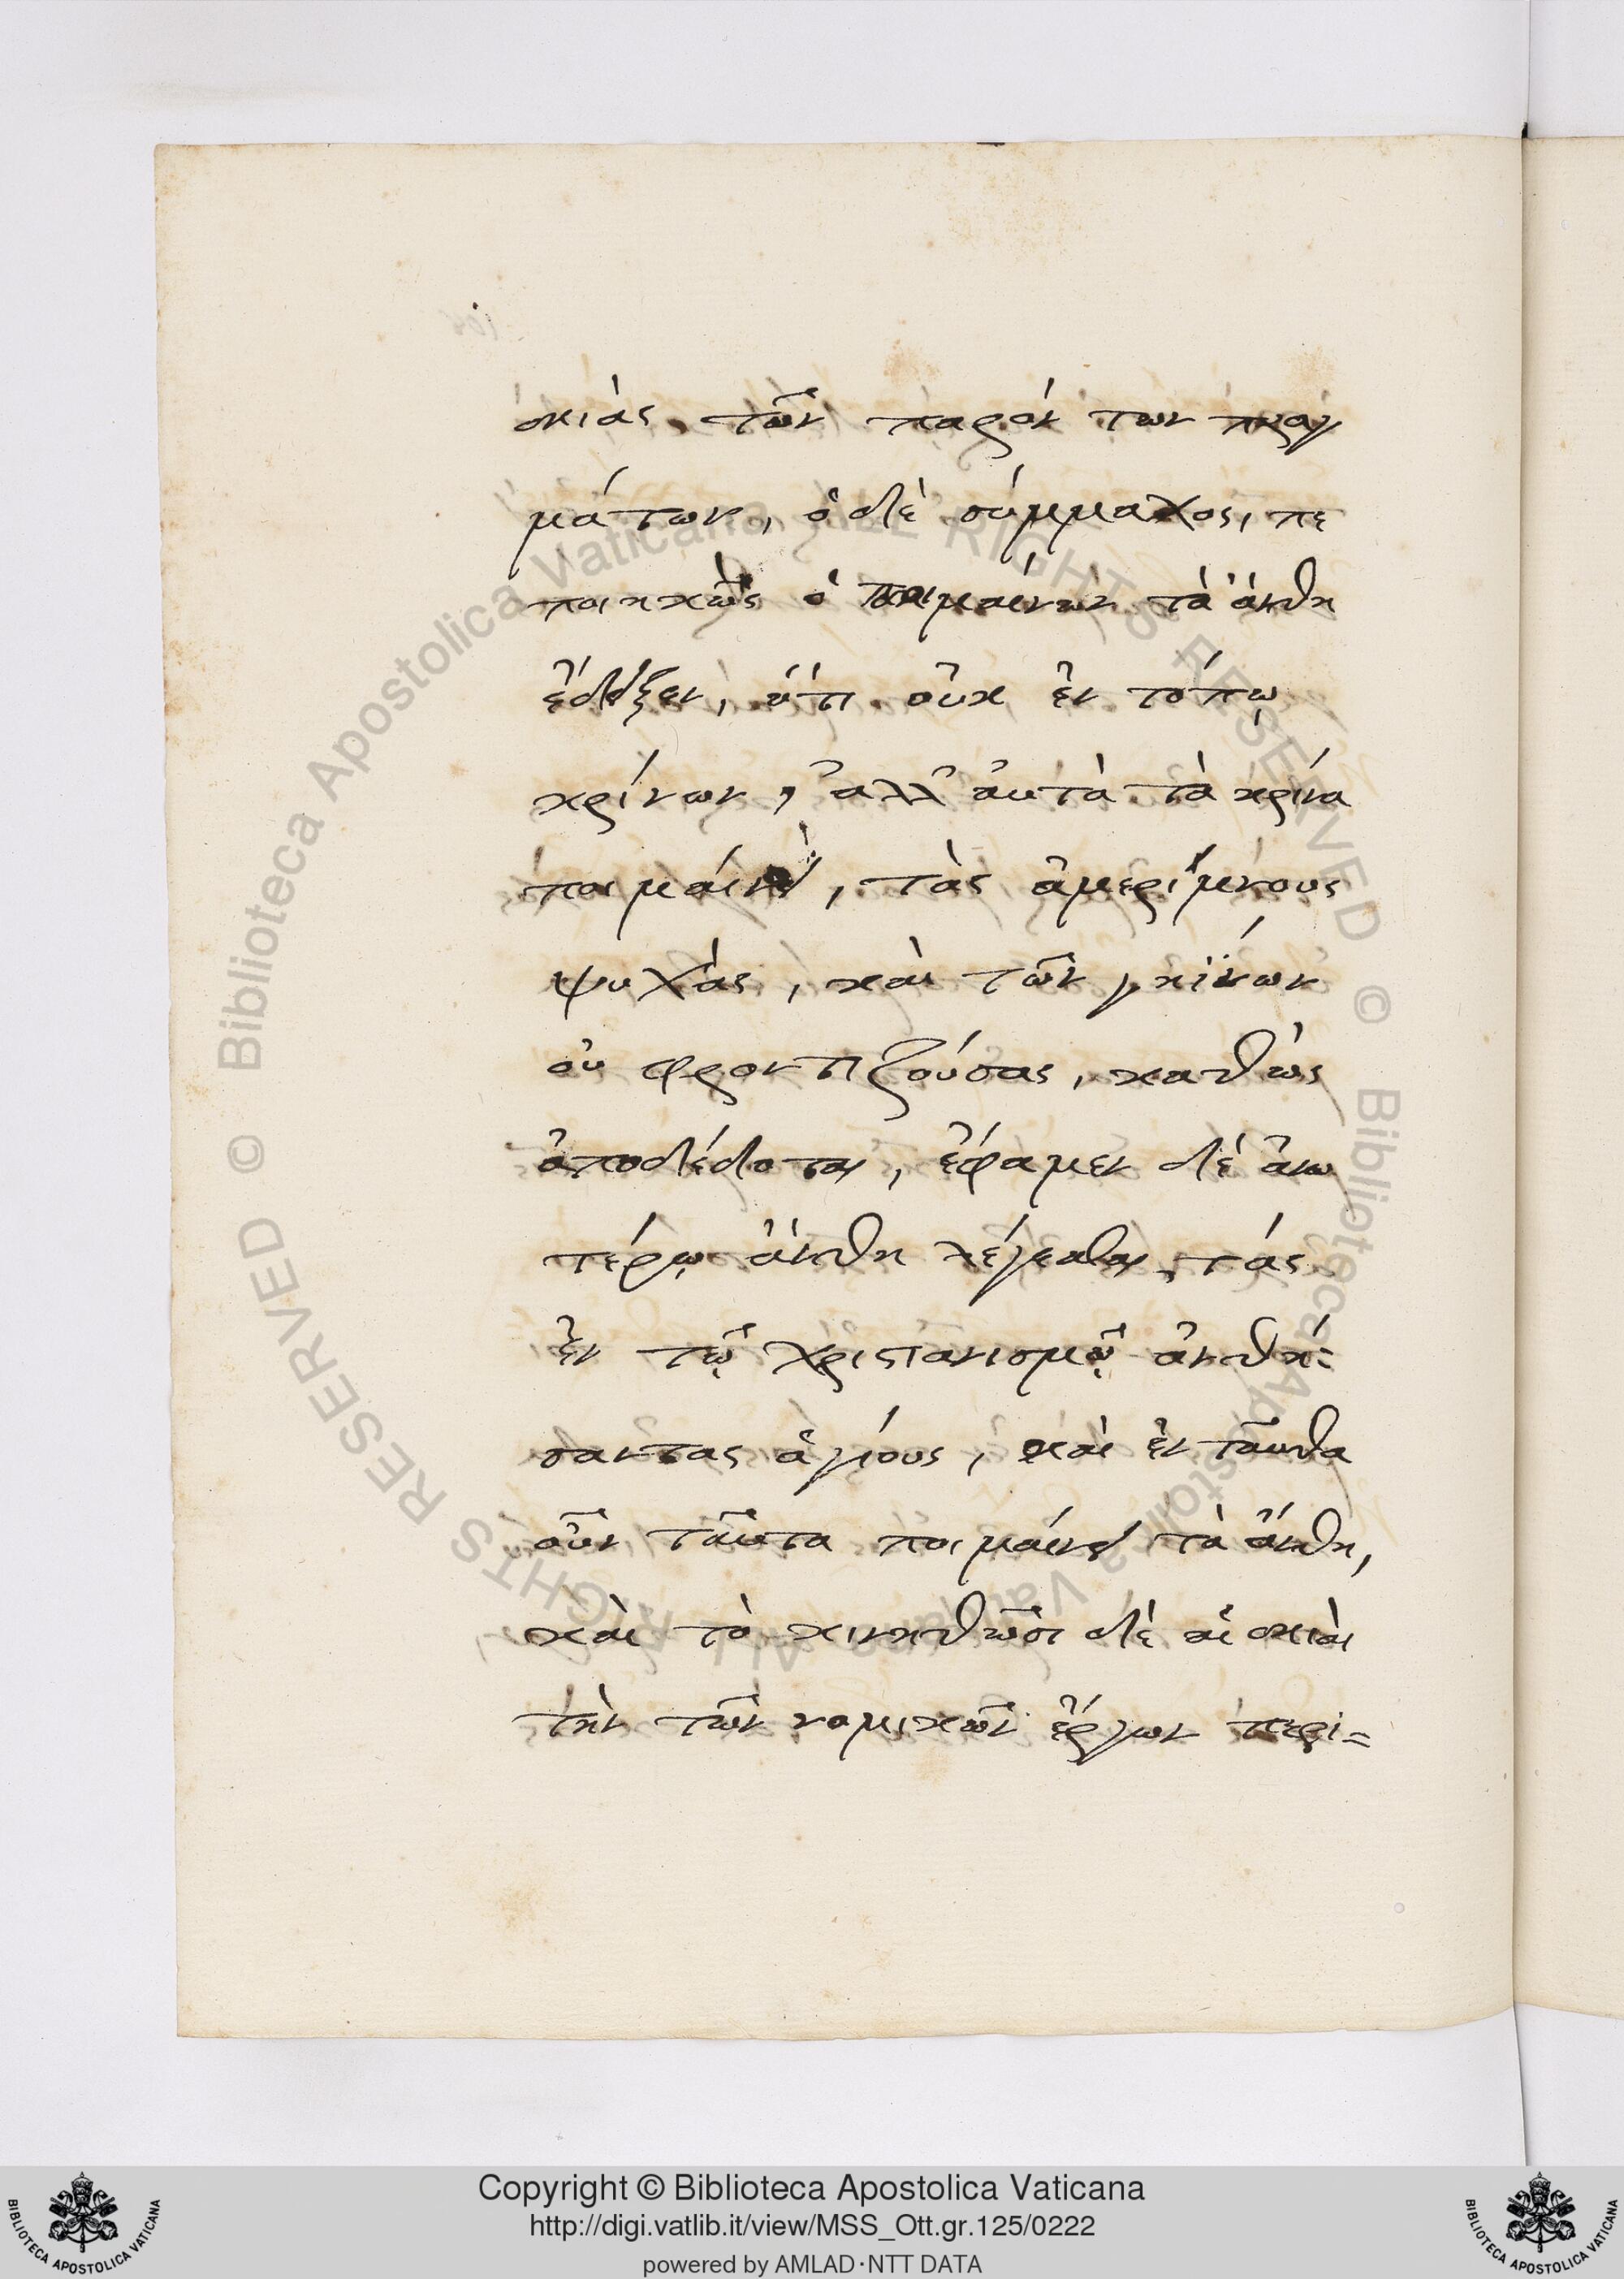 σκιὰς τῶν παρόν των πραγ
μάτων, ὁ δὲ σύμμαχος, πε
ποιηκὼς ὁ ποιμαίνων τὰ ἄνθη
ἔδειξεν, ὅτι οὐκ ἐν τόπω
κρίνων, ἀλλ' αὐτὰ τὰ κρίνα
ποιμαίνει, τὰς ἀμερίμνους
ψυχὰς, καὶ τῶν γηΐνων
οὐ φροντιζούσας, καθὼς
ἀποδέδοται, ἔφαμεν δὲ ἀνω
τέρω ἄνθη λέγεσθαι τάς
ἐν τῷ χριστιανισμῷ ἀνθή=
σαντας ἁγίους, καὶ ἐνταῦθα
οὖν ταῦτα ποιμαίνει τὰ ἄνθη,
καὶ τὸ κινηθῶσι δὲ αἱ σκιαὶ
τὴν τῶν νομικῶν ἔργων περι=
Copyright © Biblioteca Apostolica Vaticana
http://digi.vatlib.it/view/MSS_Ott.gr.125/0222
powered by AMLAD·NTT DATA
© Biblioteca Apostolica Vaticana ALL RIGHTS RESERVED
© Biblioteca Apostolica Vaticana ALL RIGHTS RESERVED
BIBLIOTECA APOSTOLICA VATICANA
BIBLIOTECA APOSTOLICA VATICANA